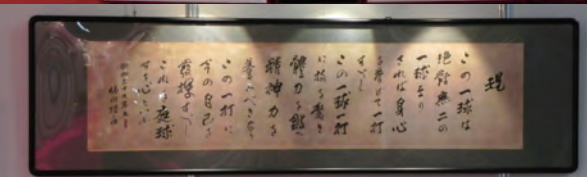 この一球は
絶對無二の
一球なり
されば身心
を挙げて一打
すべし
この一球一打
に技を磨き
體力を鍛へ
精神力を
養ふべきなり
この一打に
今の自己を
發揮すべし
これを庭球
する心といふ